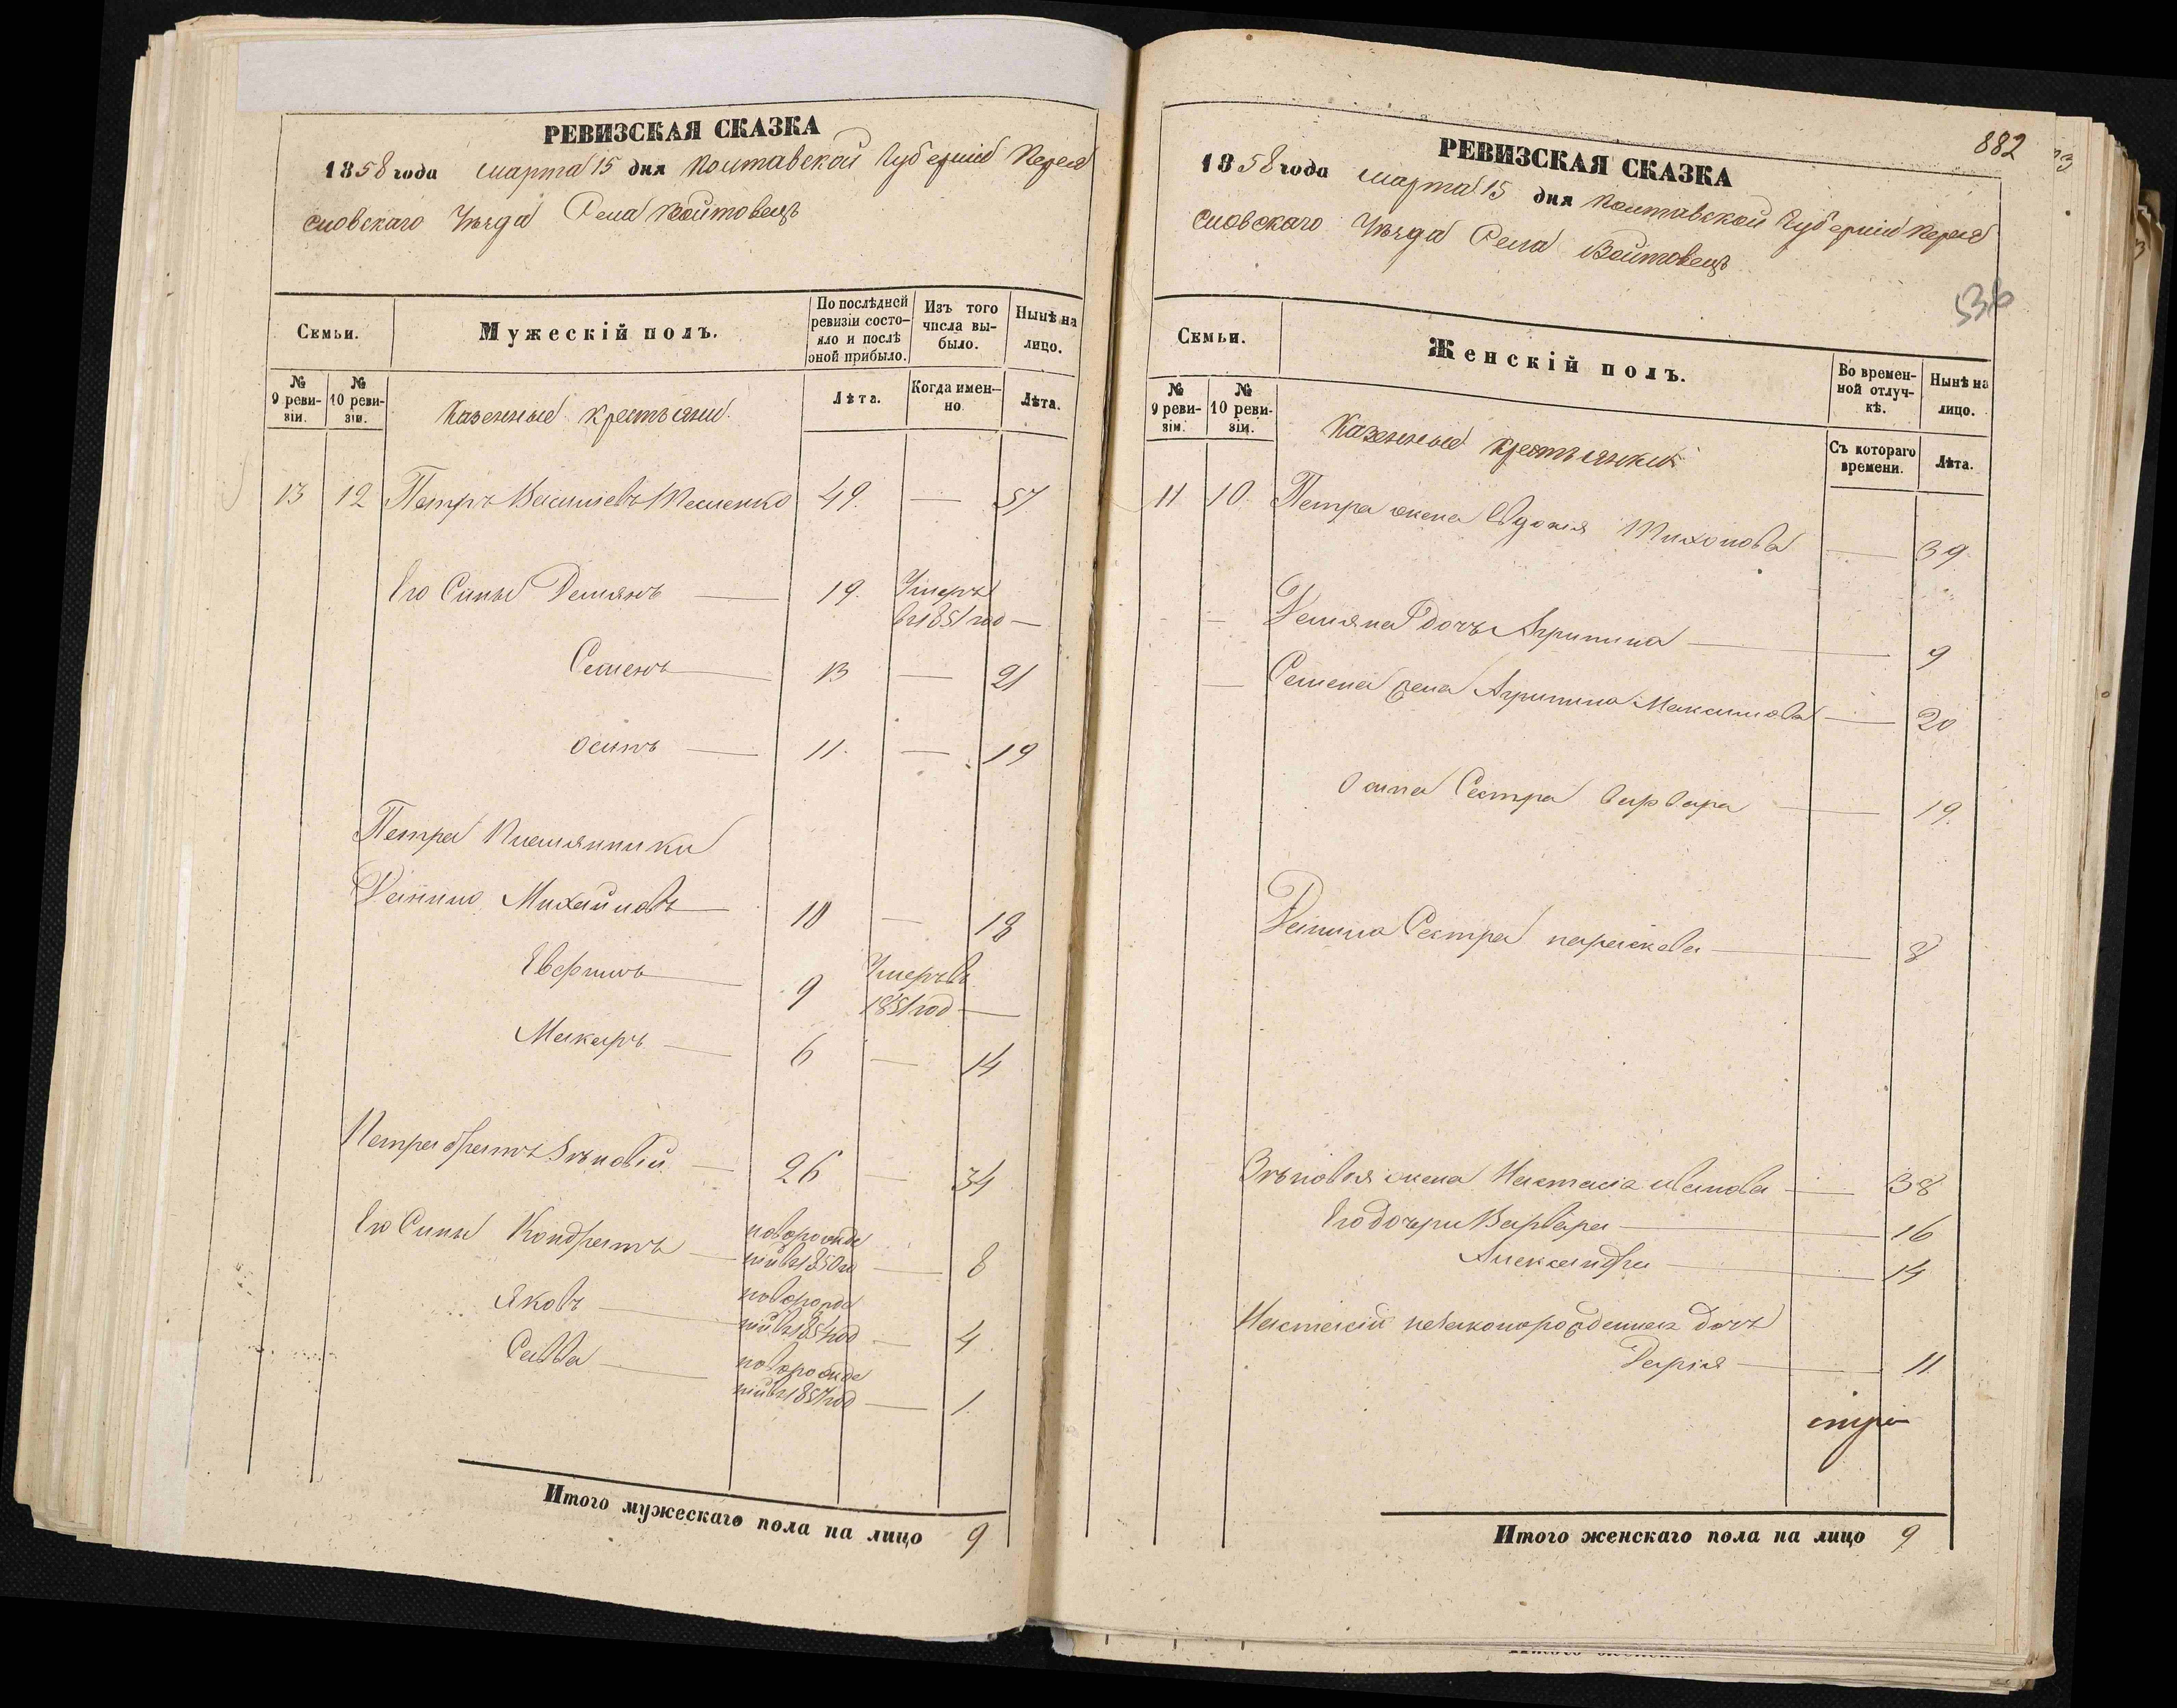 РЕВИЗСКАЯ СКАЗКА
1858 года марта 15 дня Полтавской Губерніи Перея
словскаго Уѣзда Села Войтовецъ
Семьи.
Мужескій полъ.
По послѣдней ревизіи состояло и послѣ оной прибыло.
Изъ того числа выбыло.
Нынѣ на лицо.
№ 9 ревизіи.
№ 10 ревизіи.
Казенные крестьяни
Лѣта.
Когда именно.
Лѣта.
13 12 Петръ Васильевъ 49. — 57
Его Сыны Демянъ — 19. Умеръ
въ 1851 год —
Семенъ — 13 — 21
осипъ — 11. — 19
Петра Племянники
Данило Михайловъ — 10 — 18
Евфимъ — 9 Умеръ въ
1851 год —
Макаръ — 6 — 14
Петра братъ Зѣновій — 26 — 34
Его Сыны Кондратъ — новорожде
ній въ 1850 го — 8
Яковъ — новорожде
ній въ 1854 год — 4
Савва — новорожде
ній въ 1857 год — 1.
Итого мужескаго пола на лицо 9
882
РЕВИЗСКАЯ СКАЗКА
1858 года марта 15 дня Полтавской Губерніи Перея
словскаго Уѣзда Села Войтовецъ
536
Семьи.
Женскій полъ.
Во временной отлучкѣ.
Нынѣ на лицо.
№ 9 ревизіи.
№ 10 ревизіи.
Казенные крестьянки
Съ котораго времени.
Лѣта.
11 10. Петра жена Евдокія Тихонова — 39.
— Демяна дочъ Агрипина — 9
— Семена жена Агрипина Максимова — 20
Осипа Сестра варвара — 19.
Данила Сестра параскева — 8
Зѣновія жена Настасіа иванова — 38
Его дочери Варвара — 16
Александра — 14
Настасіи незаконорожденная дочъ
Дарія — 11.
Итого женскаго пола на лицо 9